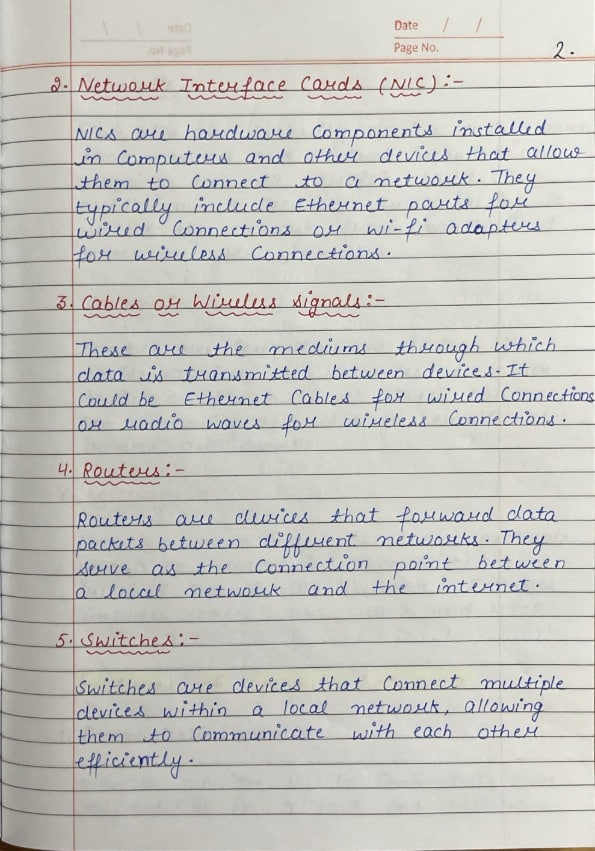 Date / /
Page No.
2.
2. Network Interface Cards (NIC) :-
NICs are hardware Components installed
in Computers and other devices that allow
them to Connect to a network. They
typically include Ethernet parts for
wired Connections or wi-fi adapters
for wireless Connections.
3. Cables or Wireless signals:-
These are the mediums through which
data is transmitted between devices. It
Could be Ethernet Cables for wired Connections
or radio waves for wireless Connections.
4. Routers:-
Routers are devices that forward data
packets between different networks. They
serve as the Connection point between
a local network and the internet.
5. Switches:-
Switches are devices that Connect multiple
devices within a local network, allowing
them to Communicate with each other
efficiently.